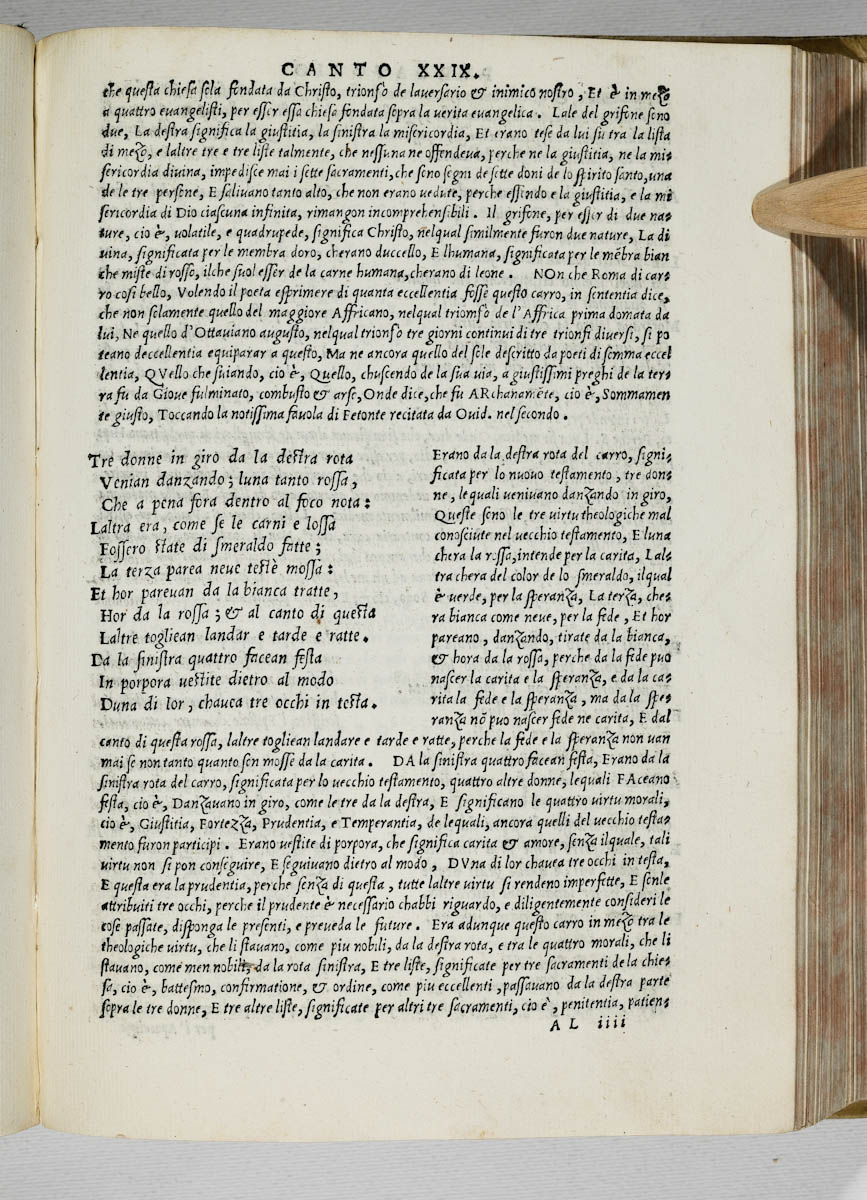 CANTO XXIX.
che questa chiesa sola fondata da Christo, trionfo de lauersario & inimico nostro, Et è in mezo
a quattro euangelisti, per esser essa chiesa fondata sopra la uerita euangelica. Lale del grifone sono
due, La destra significa la giustitia, la sinistra la misericordia, Et erano tese da lui su tra la lista
di mezo, e laltre tre e tre liste talmente, che nessuna ne offendeua, perche ne la giustitia, ne la mi=
sericordia diuina, impedisce mai i sette sacramenti, che sono segni de sette doni de lo spirito santo, una
de le tre persone, E saliuano tanto alto, che non erano uedute, perche essendo e la giustitia, e la mi
sericordia di Dio ciascuna infinita, rimangon incomprehensibili. Il grifone, per esser di due na=
ture, cio è, uolatile, e quadrupede, significa Christo, nelqual similmente furon due nature, La di
uina, significata per le membra doro, cherano duccello, E lhumana, significata per le mēbra bian
che miste di rosso, ilche suol esser de la carne humana, cherano di leone. NOn che Roma di car=
ro cosi bello, Volendo il poeta esprimere di quanta eccellentia fosse questo carro, in sententia dice,
che non solamente quello del maggiore Affricano, nelqual triomfò de l'Affrica prima domata da
lui, Ne quello d'Ottauiano augusto, nelqual trionfò tre giorni continui di tre trionfi diuersi, si po
teano deccellentia equiparar a questo, Ma ne ancora quello del sole descritto da poeti di somma eccel
lentia, QVello che suiando, cio è, Quello, chuscendo de la sua uia, a giustissimi preghi de la ter=
ra fu da Gioue fulminato, combusto & arso, Onde dice, che fu ARchanamēte, cio è, Sommamen
te giusto, Toccando la notissima fauola di Fetonte recitata da Ouid. nel secondo.
Tre donne in giro da la destra rota
Venian danzando; luna tanto rossa,
Che a pena fora dentro al foco nota:
Laltra era, come se le carni e lossa
Fossero state di smeraldo fatte;
La terza parea neue testè mossa:
Et hor pareuan da la bianca tratte,
Hor da la rossa; & al canto di questa
Laltre togliean landar e tarde e ratte.
Da la sinistra quattro facean festa
In porpora uestite dietro al modo
Duna di lor, chauea tre occhi in testa.
Erano da la destra rota del carro, signi=
ficata per lo nuouo testamento, tre don=
ne, lequali ueniuano danzando in giro,
Queste sono le tre uirtu theologiche mal
conosciute nel uecchio testamento, E luna
chera la rossa, intende per la carita, Lal=
tra chera del color de lo smeraldo, ilqual
è uerde, per la speranza, La terza, che=
ra bianca come neue, per la fede, Et hor
pareano, danzando, tirate da la bianca,
& hora da la rossa, perche da la fede puo
nascer la carita e la speranza, e da la ca=
rita la fede e la speranza, ma da la spe=
ranza nō puo nascer fede ne carita, E dal
canto di questa rossa, laltre togliean landare e tarde e ratte, perche la fede e la speranza non uan
mai se non tanto quanto sen mosse da la carita. DA la sinistra quattro facean festa, Erano da la
sinistra rota del carro, significata per lo uecchio testamento, quattro altre donne, lequali FAceano
festa, cio è, Danzauano in giro, come le tre da la destra, E significano le quattro uirtu morali,
cio è, Giustitia, Fortezza, Prudentia, e Temperantia, de lequali, ancora quelli del uecchio testa=
mento furon participi. Erano uestite di porpora, che significa carita & amore, senza ilquale, tali
uirtu non si pon conseguire, E seguiuano dietro al modo, DVna di lor chauea tre occhi in testa,
E questa era la prudentia, perche senza di questa, tutte laltre uirtu si rendeno imperfette, E senle
attribuiti tre occhi, perche il prudente è necessario chabbi riguardo, e diligentemente consideri le
cose passate, disponga le presenti, e preueda le future. Era adunque questo carro in mezo tra le
theologiche uirtu, che li stauano, come piu nobili, da la destra rota, e tra le quattro morali, che li
stauano, come men nobili, da la rota sinistra, E tre liste, significate per tre sacramenti de la chie=
sa, cio è, battesmo, confirmatione, & ordine, come piu eccellenti, passauano da la destra parte
sopra le tre donne, E tre altre liste, significate per altri tre sacramenti, cio è, penitentia, patien=
AL iiii